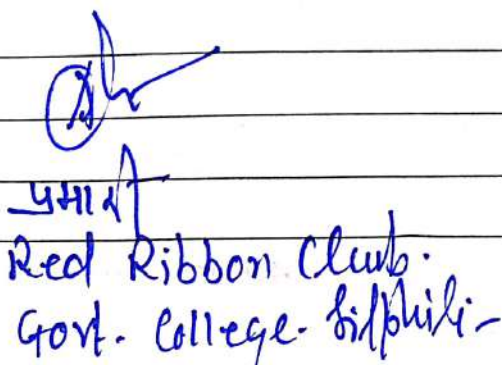 प्रभारी
Red Ribbon Club.
Govt. College. Silphili-